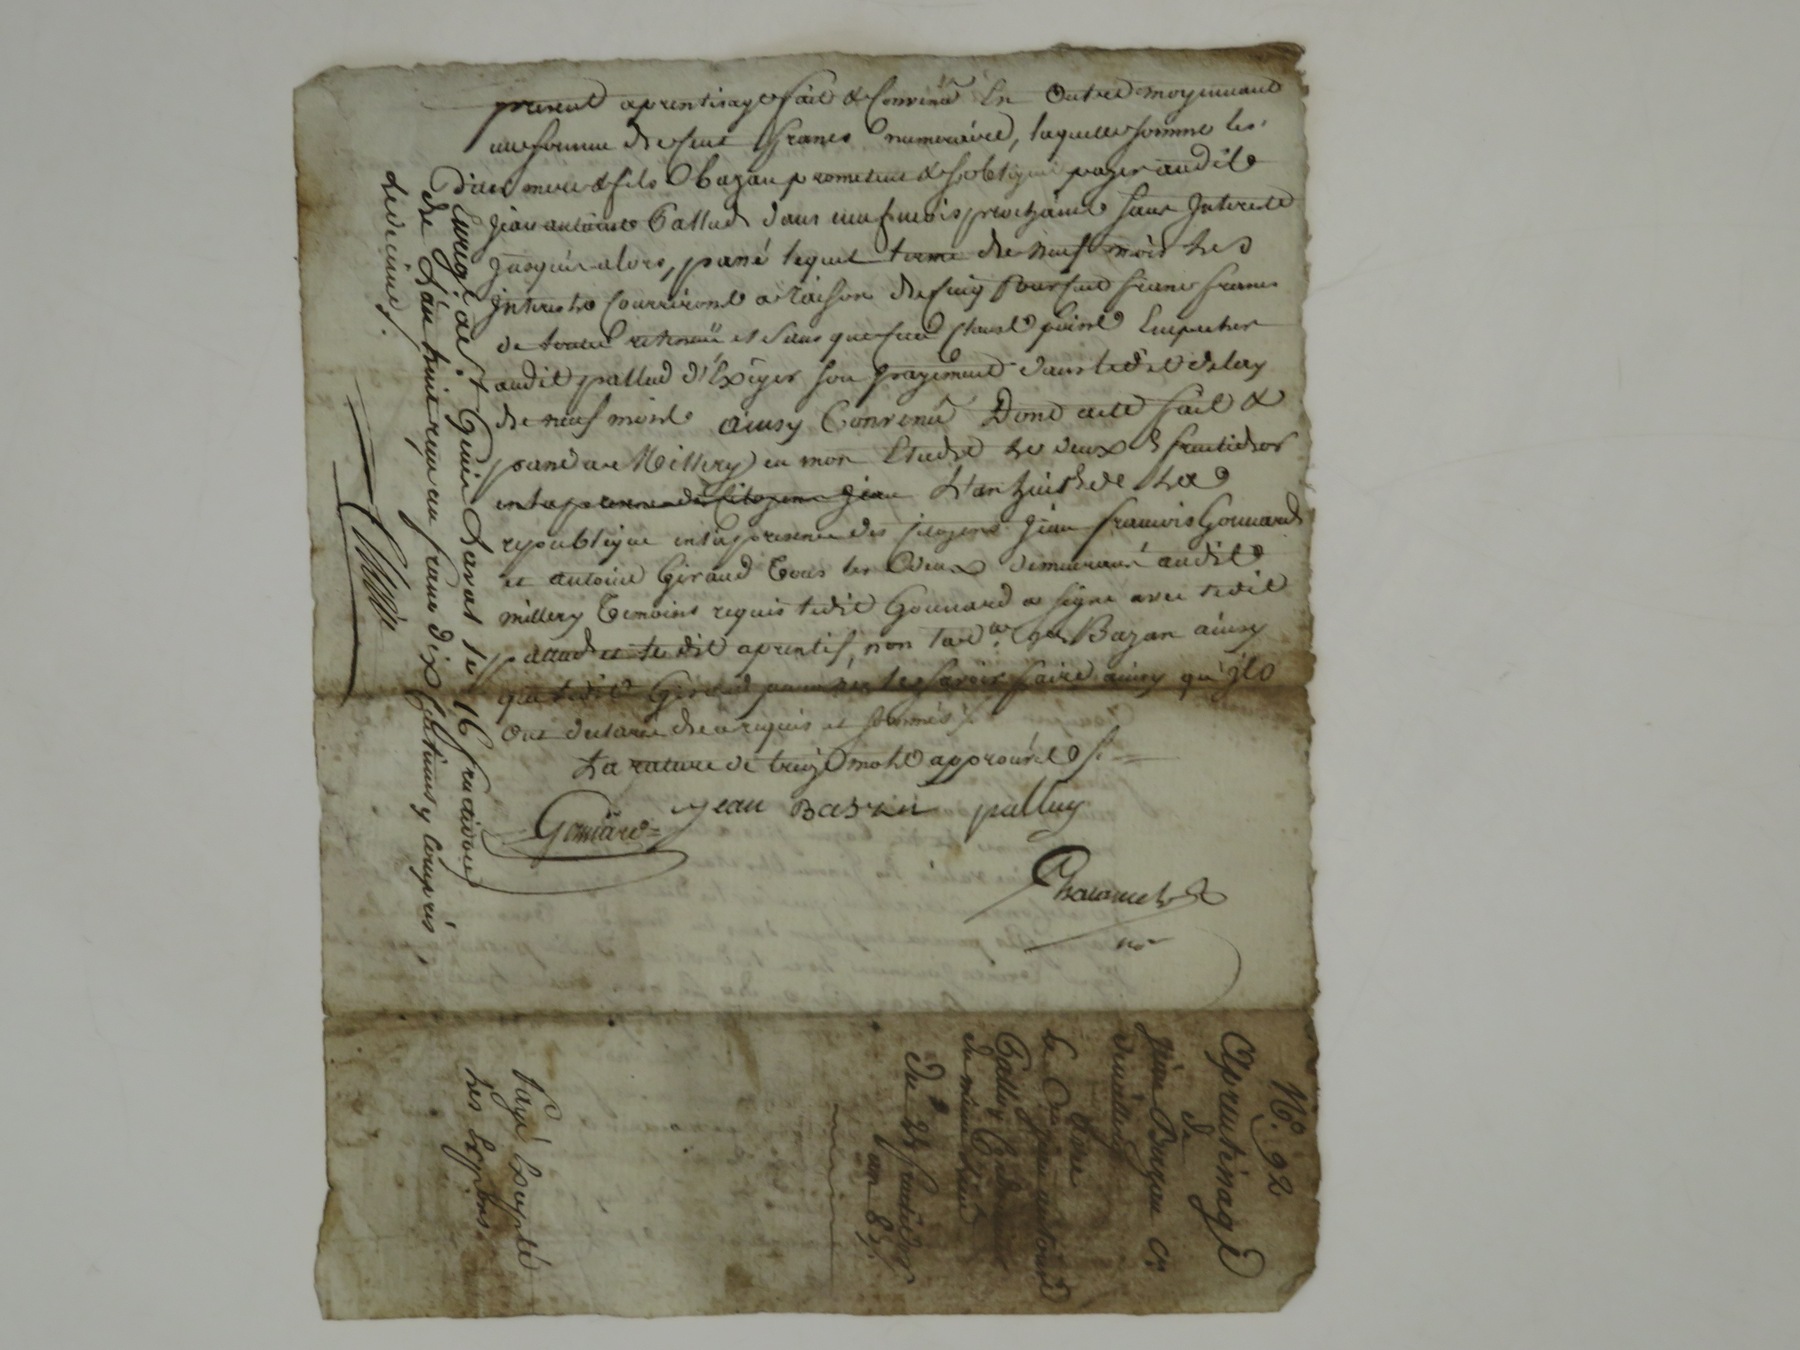 present aprentisage fait & Convenu En Outre moyennant
une somme de cent francs numeraire, laquelle somme les
dits mere & fils Bazan prometent & s'obligent payer audit
Jean antoine Pallud dans neuf mois prochains sans Interets
Jusqu'alors, passé lequel terme de neuf mois Les
Interets Courriront a raison de Cinq Pour Cent francs francs
de toute retenue et sans que Cette Clause puisse Empecher
audit pallud d'Exiger son payement dans ledit delay
de neuf mois ainsy Convenu Dont acte fait &
passé a Millery en mon Etude le deux fructidor
en la presence des Citoyens Jean L'an huit de La
republique en la presence des Citoyens Jean francois Gounard
et antoine Giraud Tous les Deux demeurant audit
millery Temoins requis ledit Gounard a signé avec ledit
pallud et le dit aprentif, non lad. Bazan ainsy
que ledit Giraud pour ne les savoir faire ainsy qu'ils
Ont declaré de ce requis et sommés
La rature de treize mots approuvée
Gounard Jean Bazan palluy
nore
Enregistré a Genis Laval le 16 fructidor
de L'an huit reçu un franc dix Centimes y Compris
Le decime.
N.º 92
Aprentissage
de
Jean Bazan
de millery
Chez
Jean antoine
Pallud
du même lieu
Du 2 fructidor
L'an 8
Payé Excepté
Les Exp